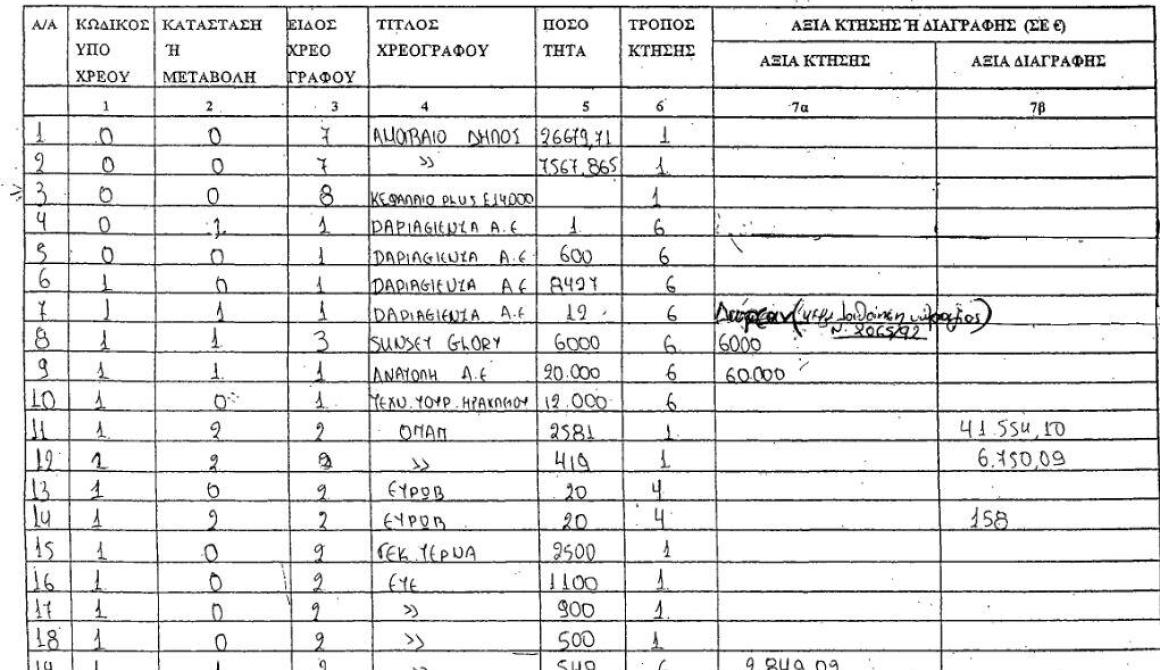 Α/Α ΚΩΔΙΚΟΣ ΥΠΟ ΧΡΕΟΥ ΚΑΤΑΣΤΑΣΗ Ή ΜΕΤΑΒΟΛΗ ΕΙΔΟΣ ΧΡΕΟ ΓΡΑΦΟΥ ΤΙΤΛΟΣ ΧΡΕΟΓΡΑΦΟΥ ΠΟΣΟ ΤΗΤΑ ΤΡΟΠΟΣ ΚΤΗΣΗΣ ΑΞΙΑ ΚΤΗΣΗΣ Ή ΔΙΑΓΡΑΦΗΣ (ΣΕ €)
ΑΞΙΑ ΚΤΗΣΗΣ ΑΞΙΑ ΔΙΑΓΡΑΦΗΣ
1 2 3 4 5 6 7α 7β
1 0 0 7 ΑΜΟΙΒΑΙΟ ΔΗΛΟΣ 26679,71 1
2 0 0 7 » 7567,865 1
3 0 0 8 ΚΕΦΑΛΑΙΟ PLUS Ε14000 1
4 0 1 1 DAPIAGIENZA Α.Ε 1 6
5 0 0 1 DAPIAGIENZA Α.Ε 600 6
6 1 0 1 DAPIAGIENZA ΑΕ 2427 6
7 1 1 1 DAPIAGIENZA Α.Ε 12 6 Δωρεάν Ν. 2065/92
8 1 1 3 SUNSET GLORY 6000 6 6000
9 1 1 1 ΑΝΑΤΟΛΗ Α.Ε 20.000 6 60.000
10 1 0 1 ΤΕΧΝ.ΤΟΥΡ.ΗΡΑΚΛΕΙΟΥ 12.000 6
11 1 2 2 ΟΠΑΠ 2581 1 41.554,10
12 1 2 2 » 419 1 6.750,09
13 1 0 2 ΕΥΡΩΒ 20 4
14 1 2 2 ΕΥΡΩΒ 20 4 158
15 1 0 2 ΓΕΚ ΤΕΡΝΑ 2500 1
16 1 0 2 ΕΤΕ 1100 1
17 1 0 2 » 900 1
18 1 0 2 » 500 1
19 1 1 2 » 549 6 9.849,09